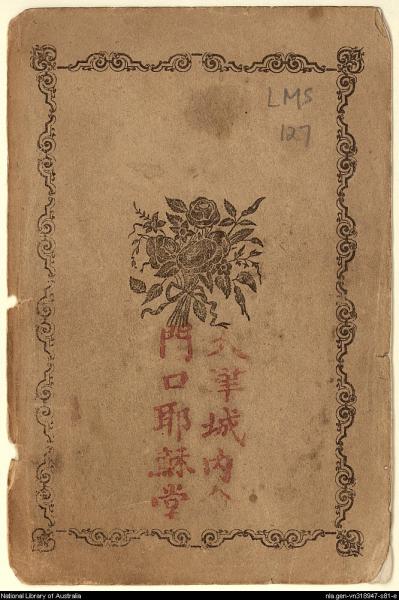 LMS
127
華城内
門口耶蘇堂
National Library of Australia
nla.gen-vn318947-s81-e